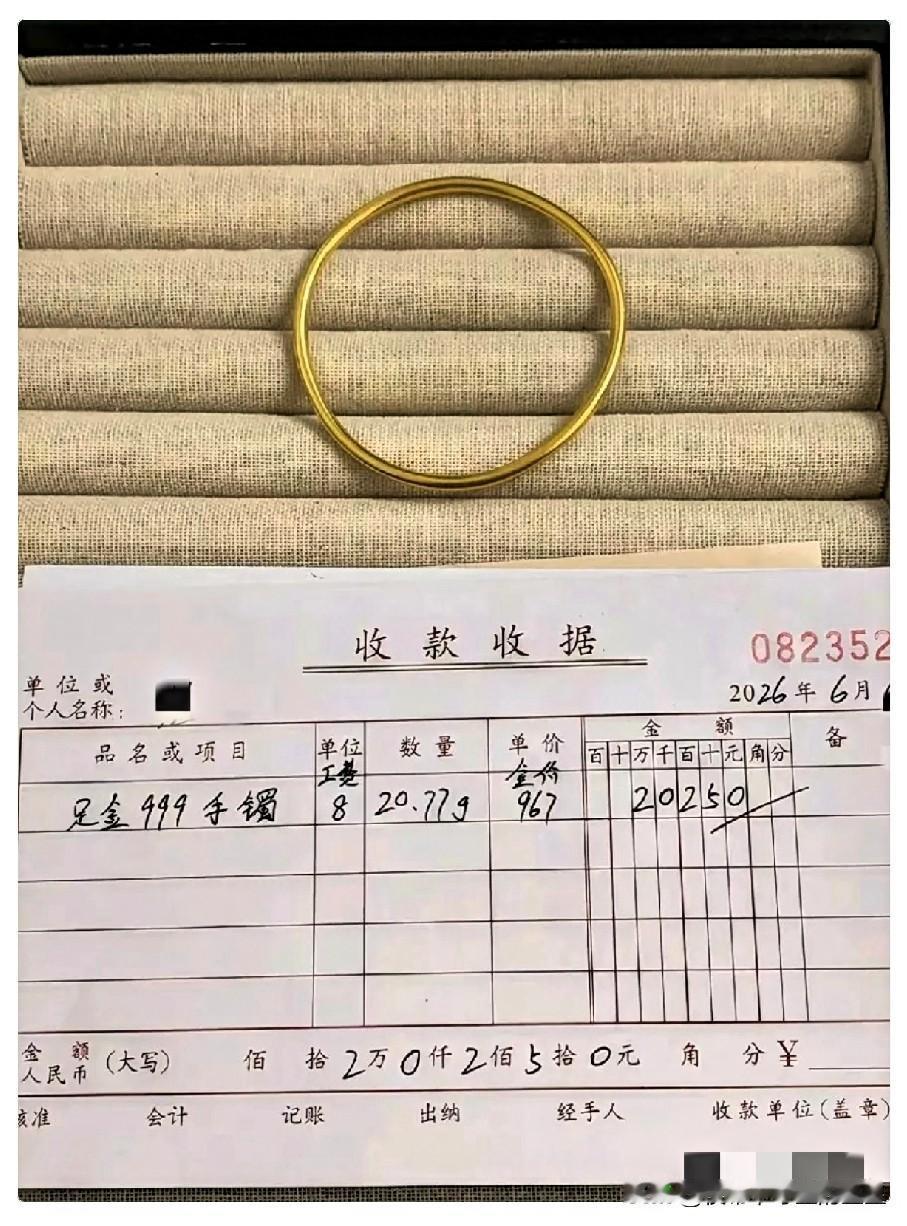 收款收据
082352
单位或
个人名称：
2026年6月
品名或项目 单位 数量 单价 金额 备
工费 金价
百十万千百十元角分
足金999手镯 8 20.77g 967 20250
金额
人民币 (大写) 佰 拾 2万 0仟 2佰 5拾 0元 角 分 ¥
核准 会计 记账 出纳 经手人 收款单位(盖章)